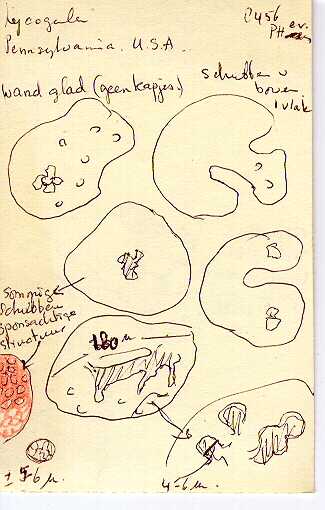 Lycogala
Pennsylvania. U.S.A.
8456
PH ev.
wand glad (geen kapjes)
schubben v
boven
1 vlak
Sommige
schubben
sponsachtige
structuur
180 u
± 5-6 u.
4-6 u.